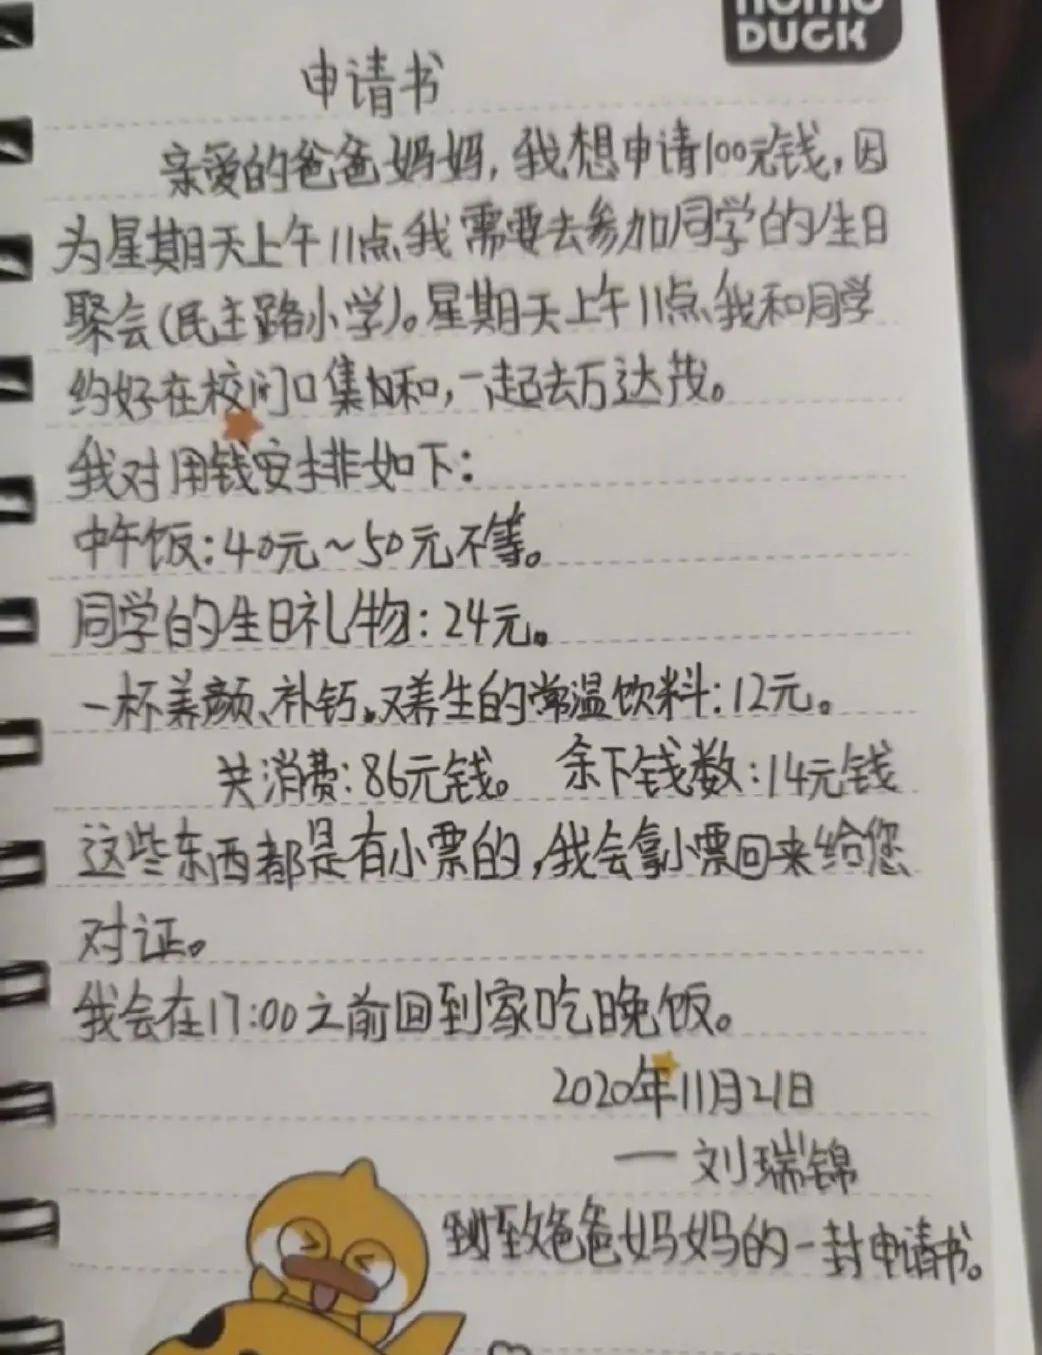 DUCK
申请书
亲爱的爸爸妈妈，我想申请100元钱，因
为星期天上午11点我需要去参加同学的生日
聚会(民主路小学)。星期天上午11点我和同学
约好在校门口集和，一起去万达茂。
我对用钱安排如下：
中午饭：40元~50元不等。
同学的生日礼物：24元。
一杯养颜、补钙。又养生的常温饮料：12元。
共消费：86元钱。 余下钱数：14元钱
这些东西都是有小票的，我会拿小票回来给您
对证。
我会在17:00之前回到家吃晚饭。
2020年11月21日
一刘瑞锦
致爸爸妈妈的一封申请书。